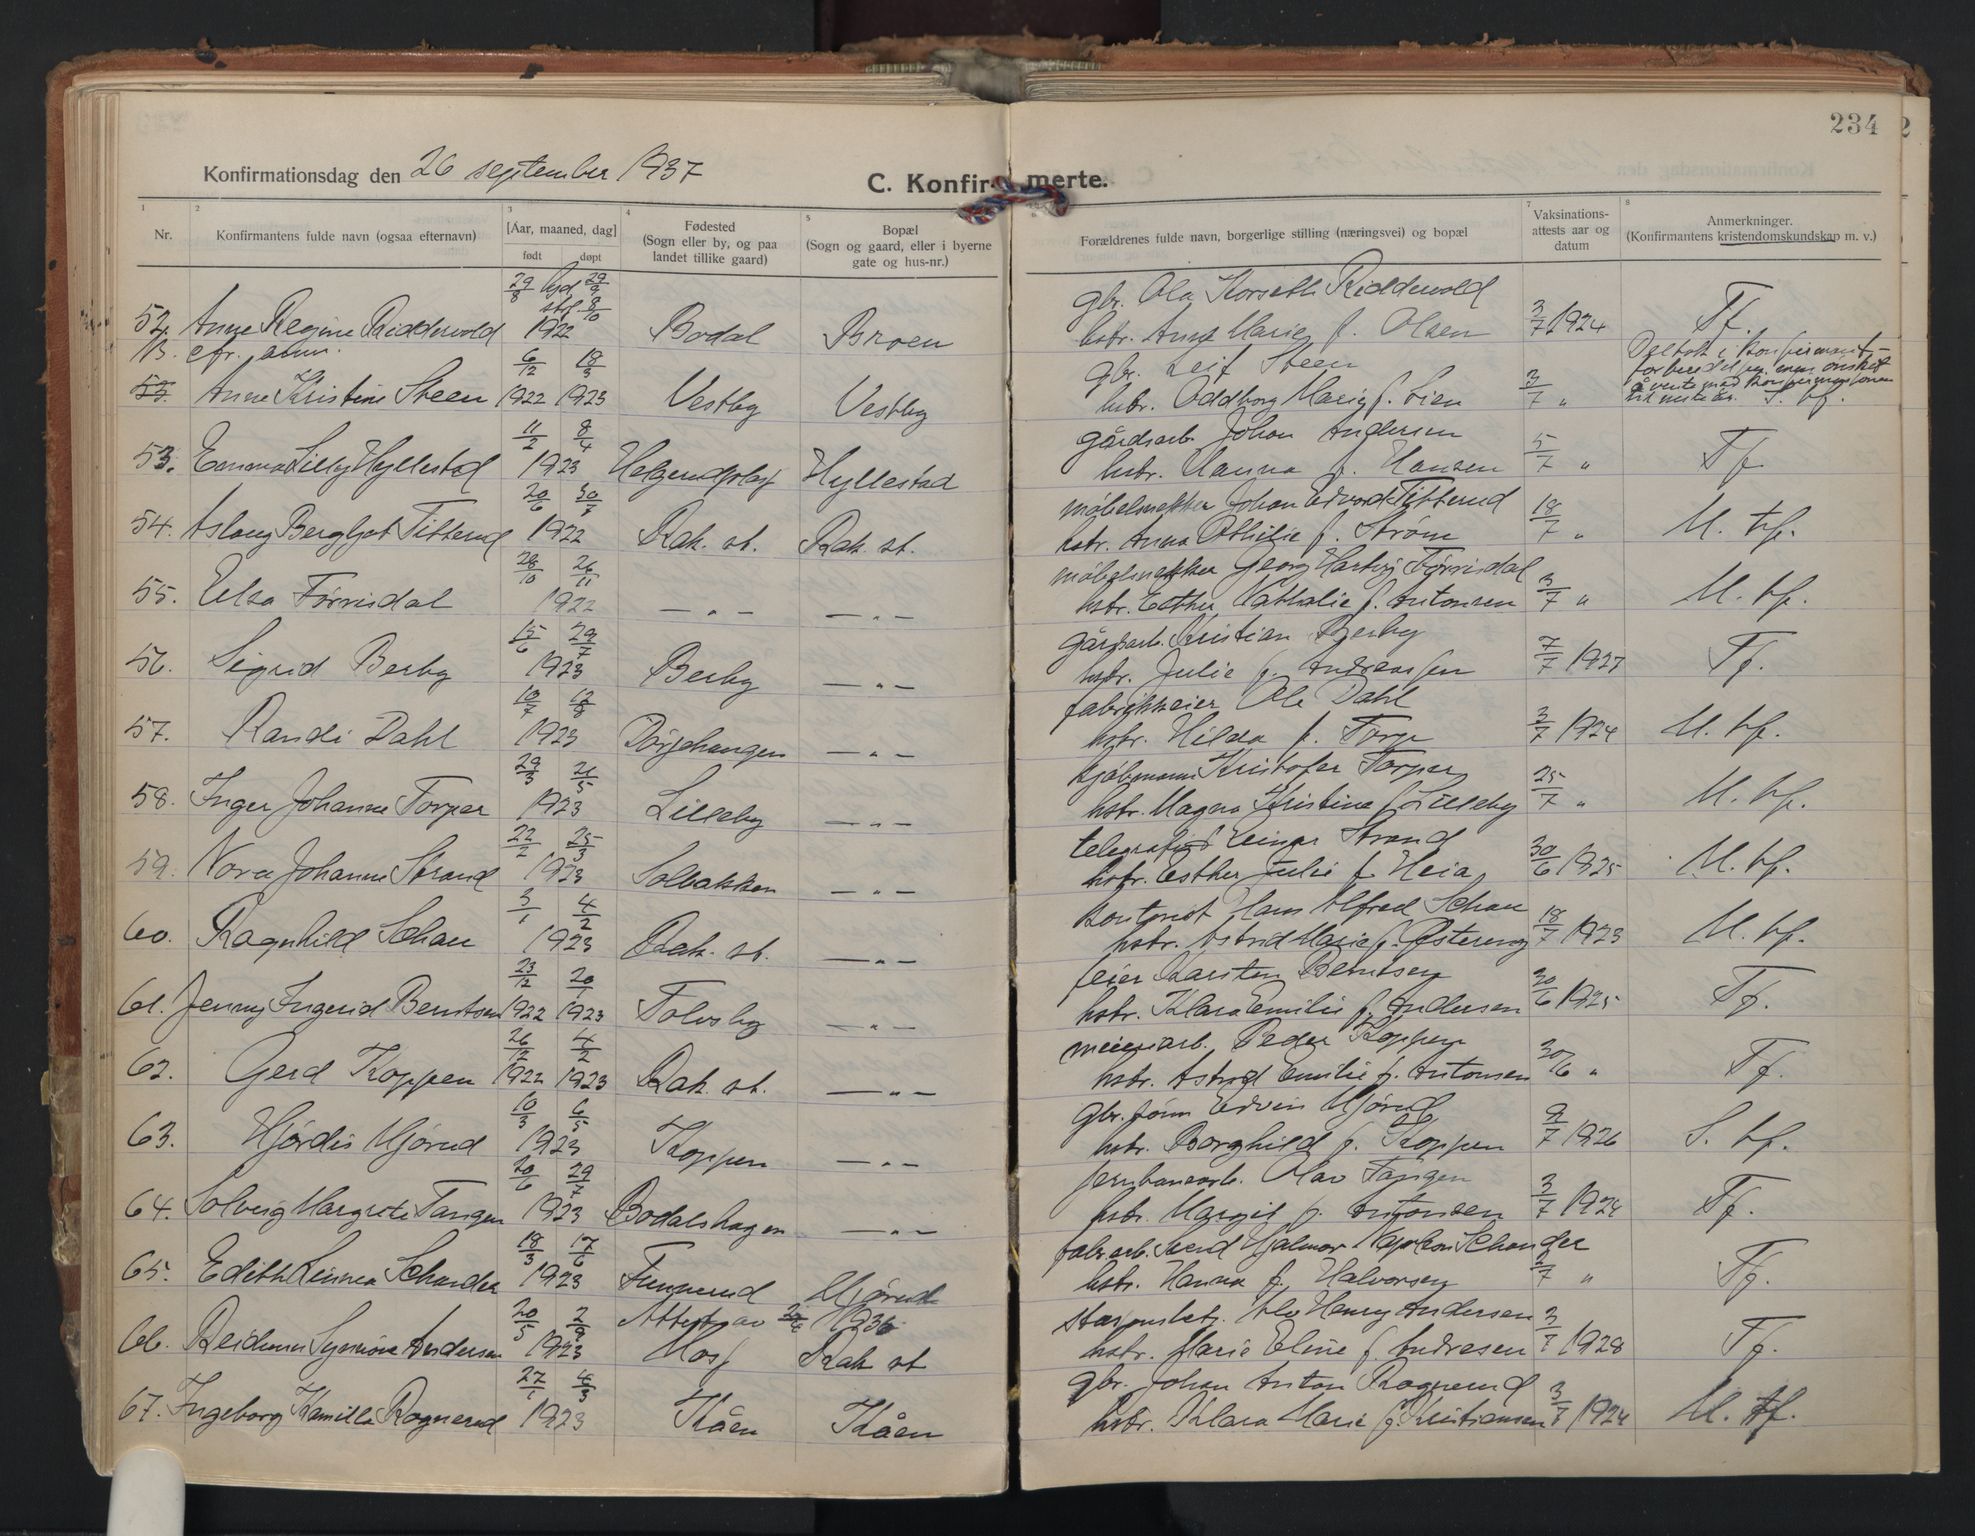 234
Konfirmationsdag den 26 september 1937
C. Konfirmerte.
1 2 3 4 5 7 8
Nr. Konfirmantens fulde navn (ogsaa efternavn) [Aar, maaned, dag] født døpt Fødested (Sogn eller by, og paa landet tillike gaard) Bopæl (Sogn og gaard, eller i byerne gate og hus-nr.) Forældrenes fulde navn, borgerlige stilling (næringsvei) og bopæl Vaksinations-attests aar og datum Anmerkninger. (Konfirmantens kristendomskundskap m. v.)
29/8 29/9 8/10 gbr. Ola Korseth Riddervold
52. Anne Regine Riddervold 1922 Bodal Broen hstr. Anne Marie f. Olsen 3/7 1924 Tf.
cfr. anm. 6/12 18/3 gbr. Leif Steen
53. Anne Kristine Steen 1922 1923 Vestby Vestby hstr. Oddborg Marie f. Lien 3/7 " Deltok i konfirmant-forberedelsen, men ønsket å vente med konfirmasjonen til neste år.
11/2 8/4 gårdsarb. Johan Andersen
53. Emma Lilly Hyllestad 1923 Hyllestad hstr. Hanna f. Hansen 5/7 " Tf.
20/6 30/7 møbelsnekker Johan Edvard Titterud
54. Aslaug Bergljot Titterud 1922 Rak. st. Rak. st. hstr. Anna Othilie f. Strøm 18/7 " M. tf.
28/10 26/11 møbelsnekker Georg Hartvig Tørrisdal
55. Elsa Tørrisdal 1922 — " — — " — hstr. Esther Nathalie f. Antonsen 3/7 " M. tf.
15/6 29/7 gårdsarb. Kristian Berby
56. Sigrid Berby 1923 Berby — " — hstr. Julie f. Andreassen 7/7 1927 Tf.
10/7 12/8 fabrikkeier Ole Dahl
57. Randi Dahl 1923 — " — hstr. Hilda f. Torp 3/7 1924 M. tf.
29/3 21/5 kjøbmann Kristofer Torper
58. Inger Johanne Torper 1923 Lilleby — " — hstr. Magna Kristine f. Lilleby 25/7 " M. tf.
22/2 25/3 telegrafist Einar Strand
59. Nora Johanne Strand 1923 Solbakken — " — hstr. Esther Julie f. Heia 30/6 1925 M. tf.
3/1 4/2 kontorist Hans Alfred Schau
60. Ragnhild Schau 1923 Rak. st. — " — hstr. Astrid Marie f. Østereng 18/7 1923 M. tf.
23/12 20/1 feier Karsten Berntsen
61. Jenny Ingerid Berntsen 1922 1923 Tolvsby — " — hstr. Klara Emilie f. Andersen 30/6 1925 Tf.
26/12 4/2 meieriarb. Peder Koppen
62. Gerd Koppen 1922 1923 Rak. st. — " — hstr. Astrid Emilie f. Antonsen 30/6 " Tf.
10/3 6/5 gbr. Jørn Edvin Mjørud
63. Hjørdis Mjørud 1923 Koppen — " — hstr. Borghild f. Koppen 9/7 1926 S. tf.
20/6 29/7 jernbanearb. Olav Tangen
64. Solveig Margrete Tangen 1923 Bodalshagen — " — hstr. Margit f. Antonsen 3/7 1924 Tf.
18/3 17/6 fabr.arb. Hjalmar Schander
65. Edith Linnea Schander 1923 Mjørud hstr. Hanna f. Halvorsen 3/7 " Tf.
20/5 2/9 Attest av 1936 Alv Henry Andersen
66. Reidunn Synnøve Andersen 1923 Moss Rak st hstr. Marie Eline f. Andresen 3/7 1928 Tf.
27/1 4/3 gbr. Johan Anton Rognerud
67. Ingeborg Kamilla Rognerud 1923 Kåen Kåen hstr. Klara Marie f. Kristiansen 3/7 1924 M. tf.